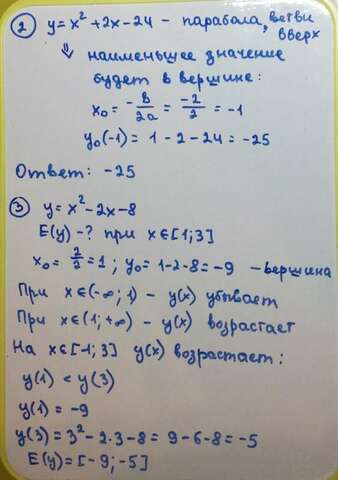 ② y = x² + 2x - 24 - парабола, ветви вверх
⇓ наименьшее значение
будет в вершине:
x₀ = -b/2a = -2/2 = -1
y₀(-1) = 1 - 2 - 24 = -25
Ответ: -25
③ y = x² - 2x - 8
E(y) - ? при x∈[1;3]
x₀ = 2/2 = 1; y₀ = 1-2-8 = -9 - вершина
При x∈(-∞; 1) - y(x) убывает
При x∈(1; +∞) - y(x) возрастает
На x∈[-1; 3] y(x) возрастает:
y(1) < y(3)
y(1) = -9
y(3) = 3² - 2·3 - 8 = 9 - 6 - 8 = -5
E(y) = [-9; -5]